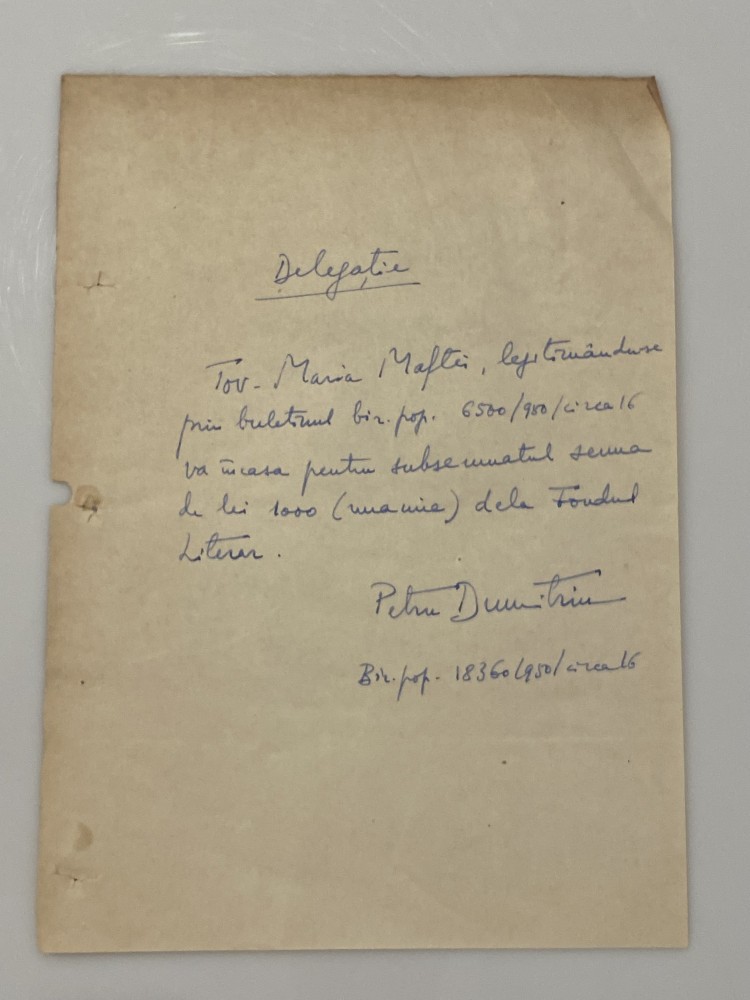 Delegație
Tov. Maria Maftei, legitimânduse
prin buletinul bir. pop. 6500/950/circa 16
va încasa pentru subsemnatul suma
de lei 1000 (una mie) dela Fondul
Literar.
Petru Dumitriu
Bir. pop. 18360/950/circa 16